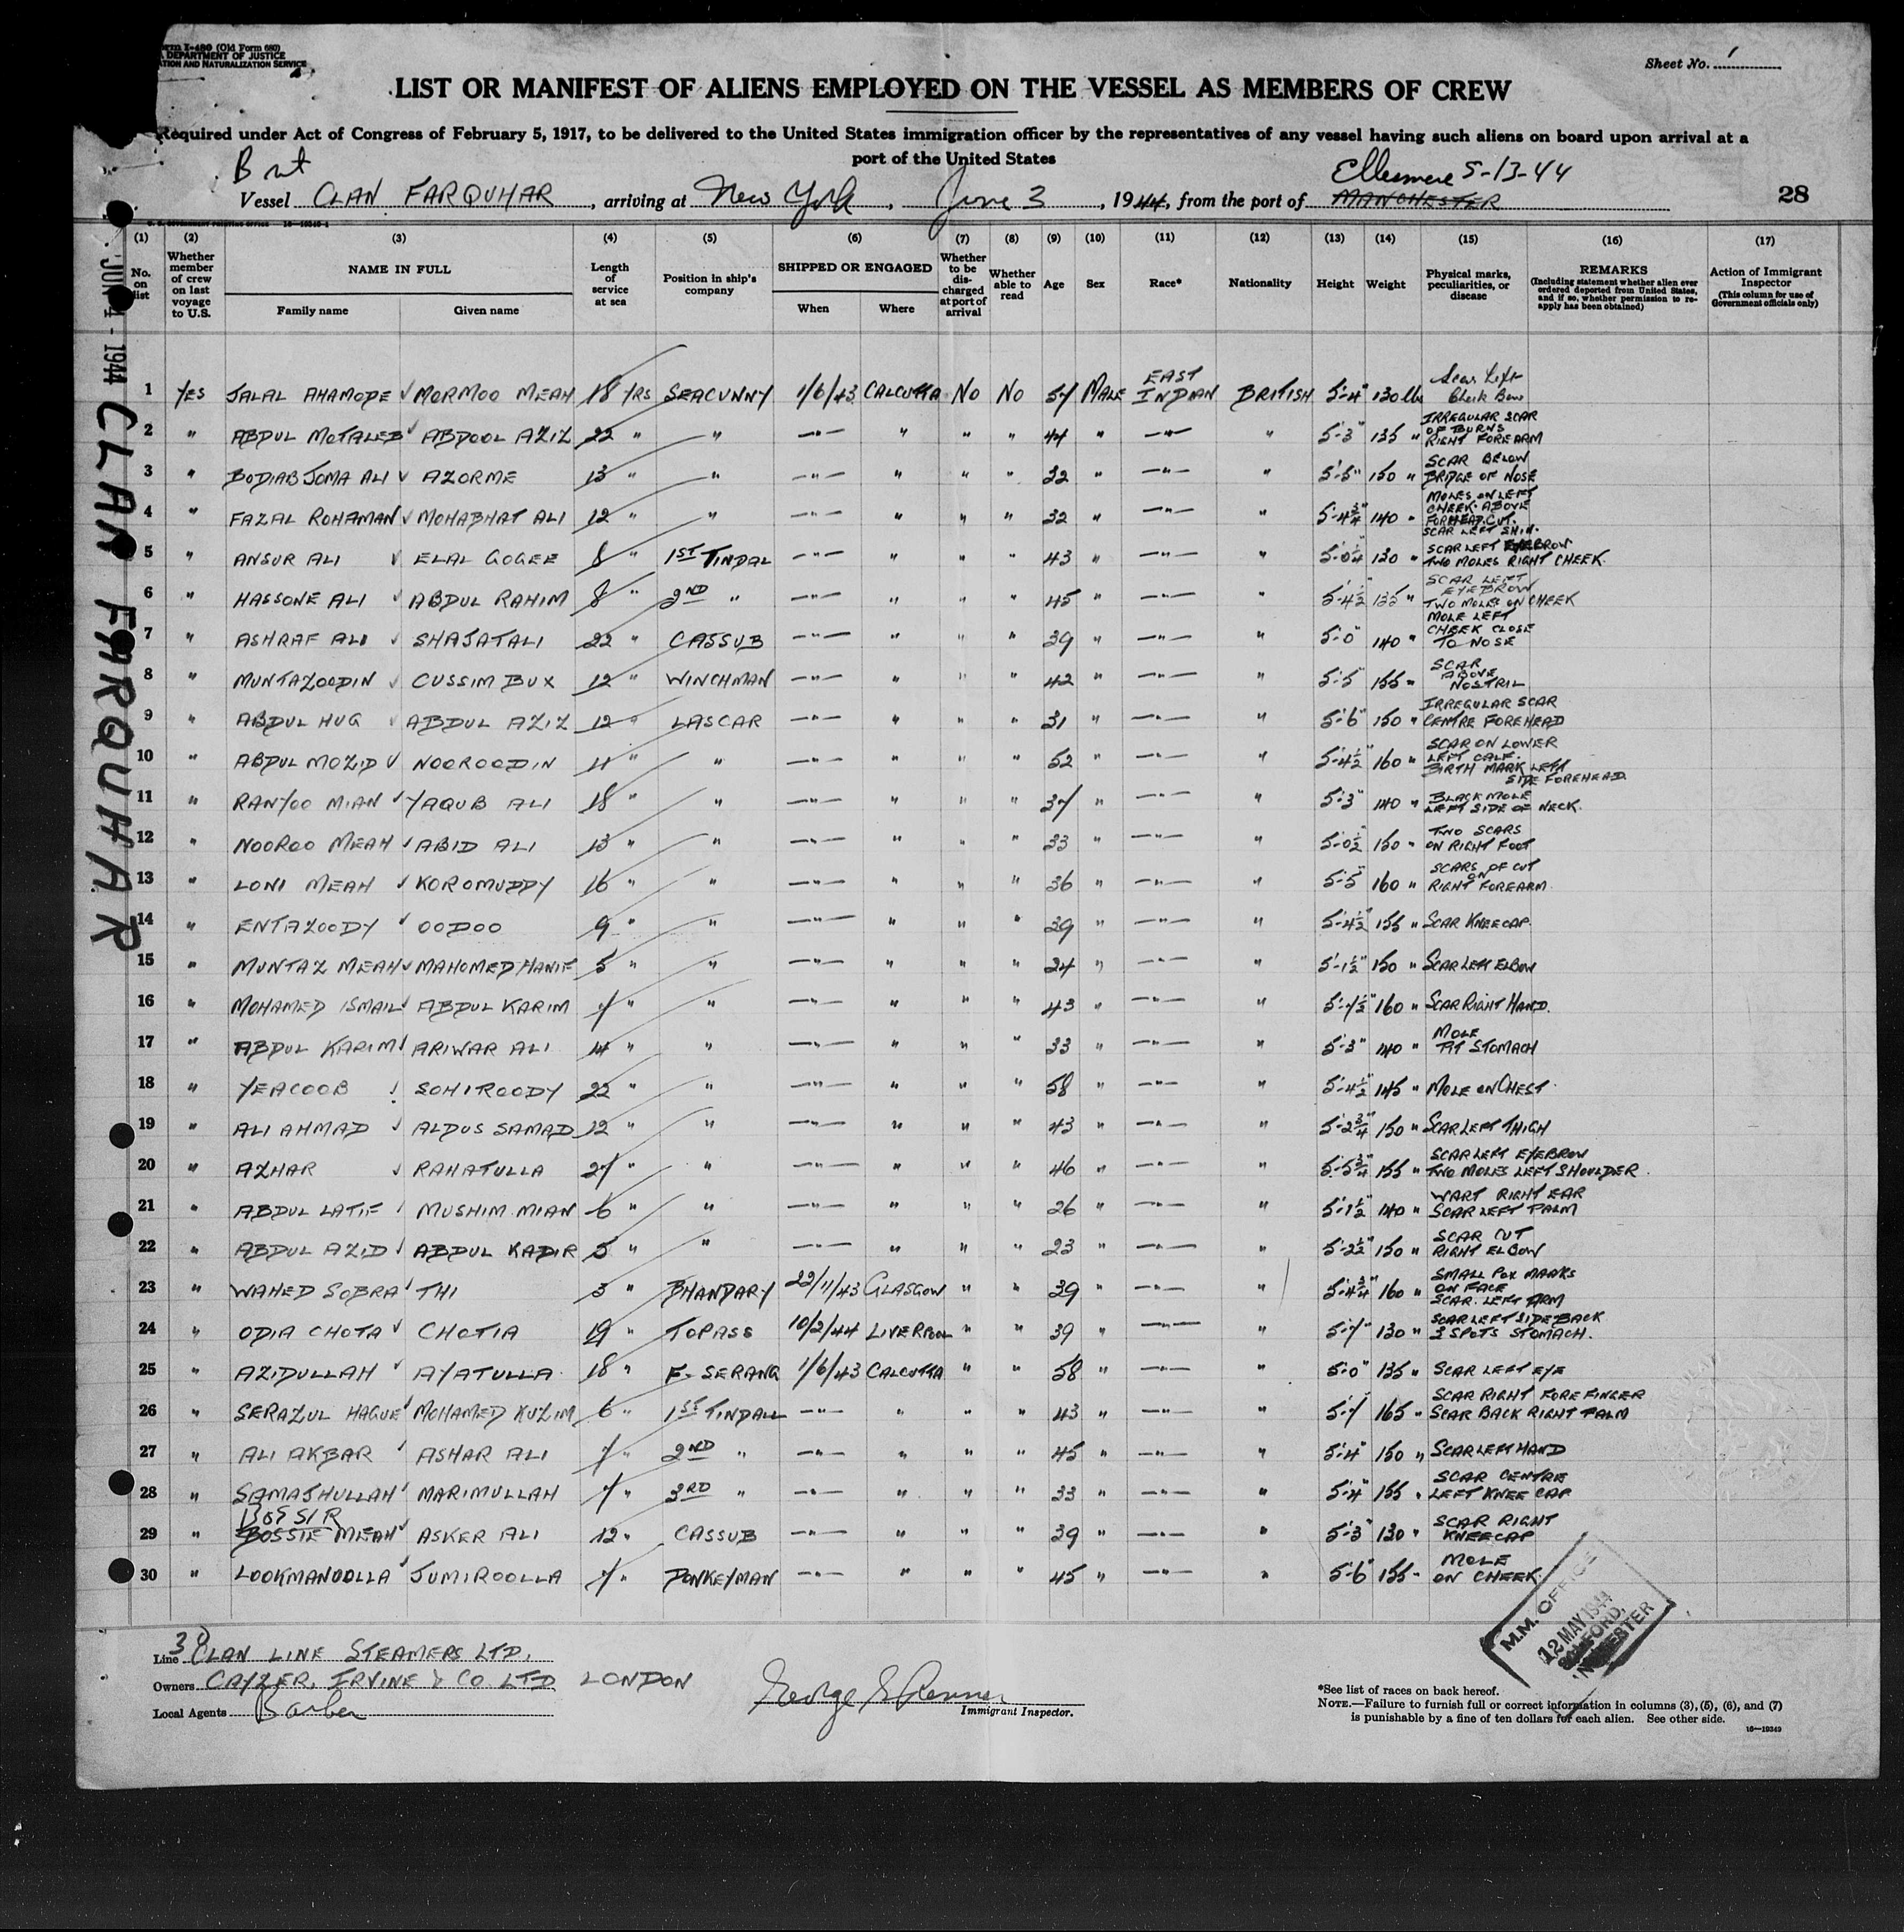 Form I-480 (Old Form 680)
DEPARTMENT OF JUSTICE
AND NATURALIZATION SERVICE
Sheet No. 1
LIST OR MANIFEST OF ALIENS EMPLOYED ON THE VESSEL AS MEMBERS OF CREW
Required under Act of Congress of February 5, 1917, to be delivered to the United States immigration officer by the representatives of any vessel having such aliens on board upon arrival at a
port of the United States
Brit
Ellesmere 5-13-44
Vessel CLAN FARQUHAR, arriving at New York, June 3, 1944, from the port of MANCHESTER
28
JUN 4 - 1944 CLAN FARQUHAR
(1) (2) (3) (4) (5) (6) (7) (8) (9) (10) (11) (12) (13) (14) (15) (16) (17)
No. on list
Whether member of crew on last voyage to U.S.
NAME IN FULL
Family name Given name
Length of service at sea
Position in ship's company
SHIPPED OR ENGAGED
When Where
Whether to be discharged at port of arrival
Whether able to read
Age
Sex
Race*
Nationality
Height
Weight
Physical marks, peculiarities, or disease
REMARKS
(Including statement whether alien ever ordered deported from United States, and if so, whether permission to reapply has been obtained)
Action of Immigrant Inspector
(This column for use of Government officials only)
1 YES JALAL AHAMODE MORMOO MEAH 18 YRS SEACUNNY 1/6/43 CALCUTTA No No 57 MALE EAST INDIAN BRITISH 5'-4" 130 lbs Scar Left Cheek Bone
2 " ABDUL MOTALEB ABDOOL AZIZ 22 " " —"— " " " 44 " —"— " 5'-3" 135 " IRREGULAR SCAR OF BURNS RIGHT FOREARM
3 " BODIAB JOMA ALI AZORME 13 " " —"— " " " 32 " —"— " 5'-5" 150 " SCAR BELOW BRIDGE OF NOSE
4 " FAZAL ROHAMAN MOHABHAT ALI 12 " " —"— " " " 32 " —"— " 5'-4¾" 140 " MOLES ON LEFT CHEEK ABOVE FOREHEAD CUT. SCAR LEFT SHIN.
5 " ANSUR ALI ELAL GOGEE 8 " 1ST TINDAL —"— " " " 43 " —"— " 5'-0¼" 130 " SCAR LEFT EYEBROW TWO MOLES RIGHT CHEEK.
6 " HASSONE ALI ABDUL RAHIM 8 " 2ND " —"— " " " 45 " —"— " 5'-4½" 135 " SCAR LEFT EYEBROW TWO MOLES ON CHEEK
7 " ASHRAF ALI SHAJATALI 22 " CASSUB —"— " " " 39 " —"— " 5'-0" 140 " MOLE LEFT CHEEK CLOSE TO NOSE
8 " MUNTAZOODIN CUSSIM BUX 12 " WINCHMAN —"— " " " 42 " —"— " 5'-5" 155 " SCAR ABOVE NOSTRIL
9 " ABDUL HUG ABDUL AZIZ 12 " LASCAR —"— " " " 31 " —"— " 5'-6" 150 " IRREGULAR SCAR CENTRE FOREHEAD
10 " ABDUL MOZID NOOROODIN 11 " " —"— " " " 52 " —"— " 5'-4½" 160 " SCAR ON LOWER LEFT CALF. BIRTH MARK LEFT SIDE FOREHEAD
11 " RANYOO MIAN YAQUB ALI 18 " " —"— " " " 37 " —"— " 5'-3" 140 " BLACK MOLE LEFT SIDE OF NECK.
12 " NOOROO MEAH ABID ALI 13 " " —"— " " " 33 " —"— " 5'-0½" 150 " TWO SCARS ON RIGHT FOOT
13 " LONI MEAH KOROMUDDY 16 " " —"— " " " 36 " —"— " 5'-5" 160 " SCARS OF CUT ON RIGHT FOREARM
14 " ENTAZOODY OODOO 9 " " —"— " " " 29 " —"— " 5'-4½" 155 " SCAR KNEECAP.
15 " MUNTAZ MEAH MAHOMED HANIF 5 " " —"— " " " 24 " —"— " 5'-1½" 150 " SCAR LEFT ELBOW
16 " MOHAMED ISMAIL ABDUL KARIM 7 " " —"— " " " 43 " —"— " 5'-7½" 160 " SCAR RIGHT HAND.
17 " ABDUL KARIM ARIWAR ALI 14 " " —"— " " " 33 " —"— " 5'-3" 140 " MOLE PIT STOMACH
18 " YEACOOB SOHIROODY 22 " " —"— " " " 58 " —"— " 5'-4½" 145 " MOLE ON CHEST.
19 " ALI AHMAD ALDUS SAMAD 12 " " —"— " " " 43 " —"— " 5'-2¾" 150 " SCAR LEFT THIGH
20 " AZHAR RAHATULLA 27 " " —"— " " " 46 " —"— " 5'-5¾" 155 " SCAR LEFT EYEBROW TWO MOLES LEFT SHOULDER.
21 " ABDUL LATIF MUSHIM MIAN 6 " " —"— " " " 26 " —"— " 5'-1½" 140 " WART RIGHT EAR SCAR LEFT PALM
22 " ABDUL AZID ABDUL KADIR 5 " " —"— " " " 23 " —"— " 5'-2½" 150 " SCAR CUT RIGHT ELBOW
23 " WAHED SOBRA THI 3 " BHANDARY 22/11/43 GLASGOW " " 39 " —"— " 5'-4¾" 160 " SMALL POX MARKS ON FACE SCAR LEFT ARM
24 " ODIA CHOTA CHOTIA 19 " TOPASS 10/2/44 LIVERPOOL " " 39 " —"— " 5'-7" 130 " SCAR LEFT SIDE BACK 3 SPOTS STOMACH.
25 " AZIDULLAH AYATULLA 18 " F. SERANG 1/6/43 CALCUTTA " " 58 " —"— " 5'-0" 135 " SCAR LEFT EYE
26 " SERAZUL HAGUE MOHAMED KUZIM 6 " 1ST TINDALL —"— " " " 43 " —"— " 5'-7" 165 " SCAR RIGHT FORE FINGER SCAR BACK RIGHT PALM
27 " ALI AKBAR ASHAR ALI 7 " 2ND " —"— " " " 45 " —"— " 5'-4" 150 " SCAR LEFT HAND
28 " SAMAJHULLAH MARIMULLAH 7 " 3RD " —"— " " " 33 " —"— " 5'-4" 155 " SCAR CENTRE LEFT KNEE CAP
BOSSIR
29 " BOSSIE MEAH ASKER ALI 12 " CASSUB —"— " " " 39 " —"— " 5'-3" 130 " SCAR RIGHT KNEECAP
30 " LOOKMANOOLLA JUMIROOLLA 7 " DONKEYMAN —"— " " " 45 " —"— " 5'-6" 155 " MOLE ON CHEEK.
M.M. OFFICE
12 MAY 1944
SALFORD,
MANCHESTER
30
Line CLAN LINE STEAMERS LTD.
Owners CAYZER, IRVINE & CO. LTD LONDON
Local Agents Barber
George S Renner
Immigrant Inspector.
*See list of races on back hereof.
NOTE.—Failure to furnish full or correct information in columns (3), (5), (6), and (7)
is punishable by a fine of ten dollars for each alien. See other side.
16—19349